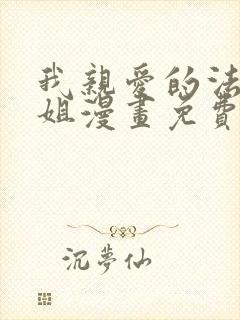 我親愛的法
姐漫畫免費
沉夢仙